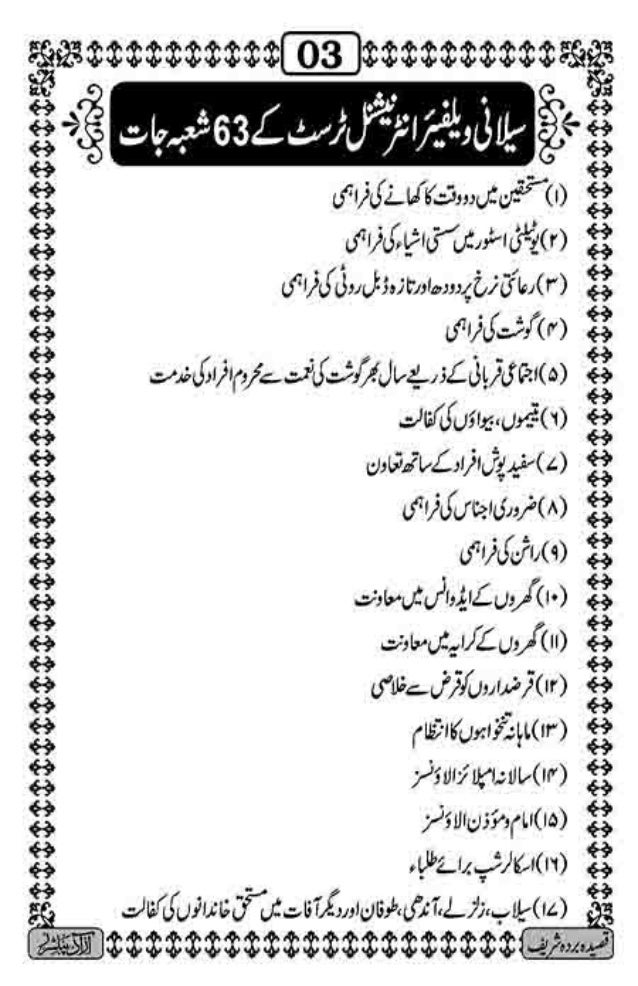 03
سیلانی ویلفیئر انٹرنیشنل ٹرسٹ کے 63 شعبہ جات
(۱) مستحقین میں دو وقت کا کھانے کی فراہمی
(۲) یوٹیلٹی اسٹور میں سستی اشیاء کی فراہمی
(۳) رعائتی نرخ پر دودھ اور تازہ ڈبل روٹی کی فراہمی
(۴) گوشت کی فراہمی
(۵) اجتماعی قربانی کے ذریعے سال بھر گوشت کی نعمت سے محروم افراد کی خدمت
(۶) یتیموں، بیواؤں کی کفالت
(۷) سفید پوش افراد کے ساتھ تعاون
(۸) ضروری اجناس کی فراہمی
(۹) راشن کی فراہمی
(۱۰) گھروں کے ایڈوانس میں معاونت
(۱۱) گھروں کے کرایہ میں معاونت
(۱۲) قرضداروں کو قرض سے خلاصی
(۱۳) ماہانہ تنخواہوں کا انتظام
(۱۴) سالانہ امپلائز الاؤنسز
(۱۵) امام و مؤذن الاؤنسز
(۱۶) اسکالرشپ برائے طلباء
(۱۷) سیلاب، زلزلے، آندھی، طوفان اور دیگر آفات میں مستحق خاندانوں کی کفالت
قصیدہ بردہ شریف